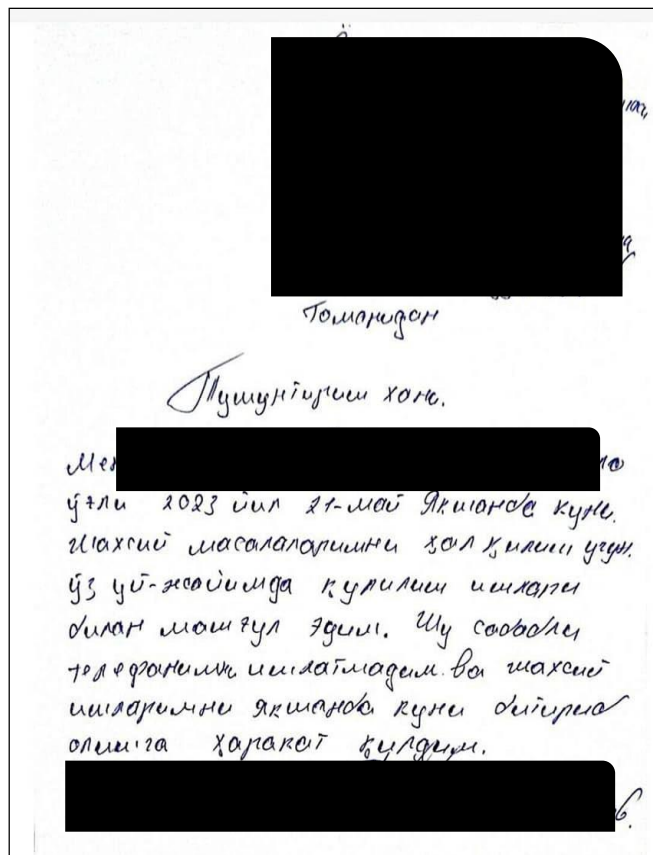 Томонидан
Тушунтириш хати.
Мен
ўғли 2023 йил 21-май Якшанба куни.
Шахсий масалаларимни ҳал қилиш учун.
ўз уй-жойимда қурилиш ишлари
билан машғул эдим. Шу сабабли
телефаними ишлатмадим. ва шахсий
ишларимни якшанба куни битириб
олишга ҳаракат қилдим.